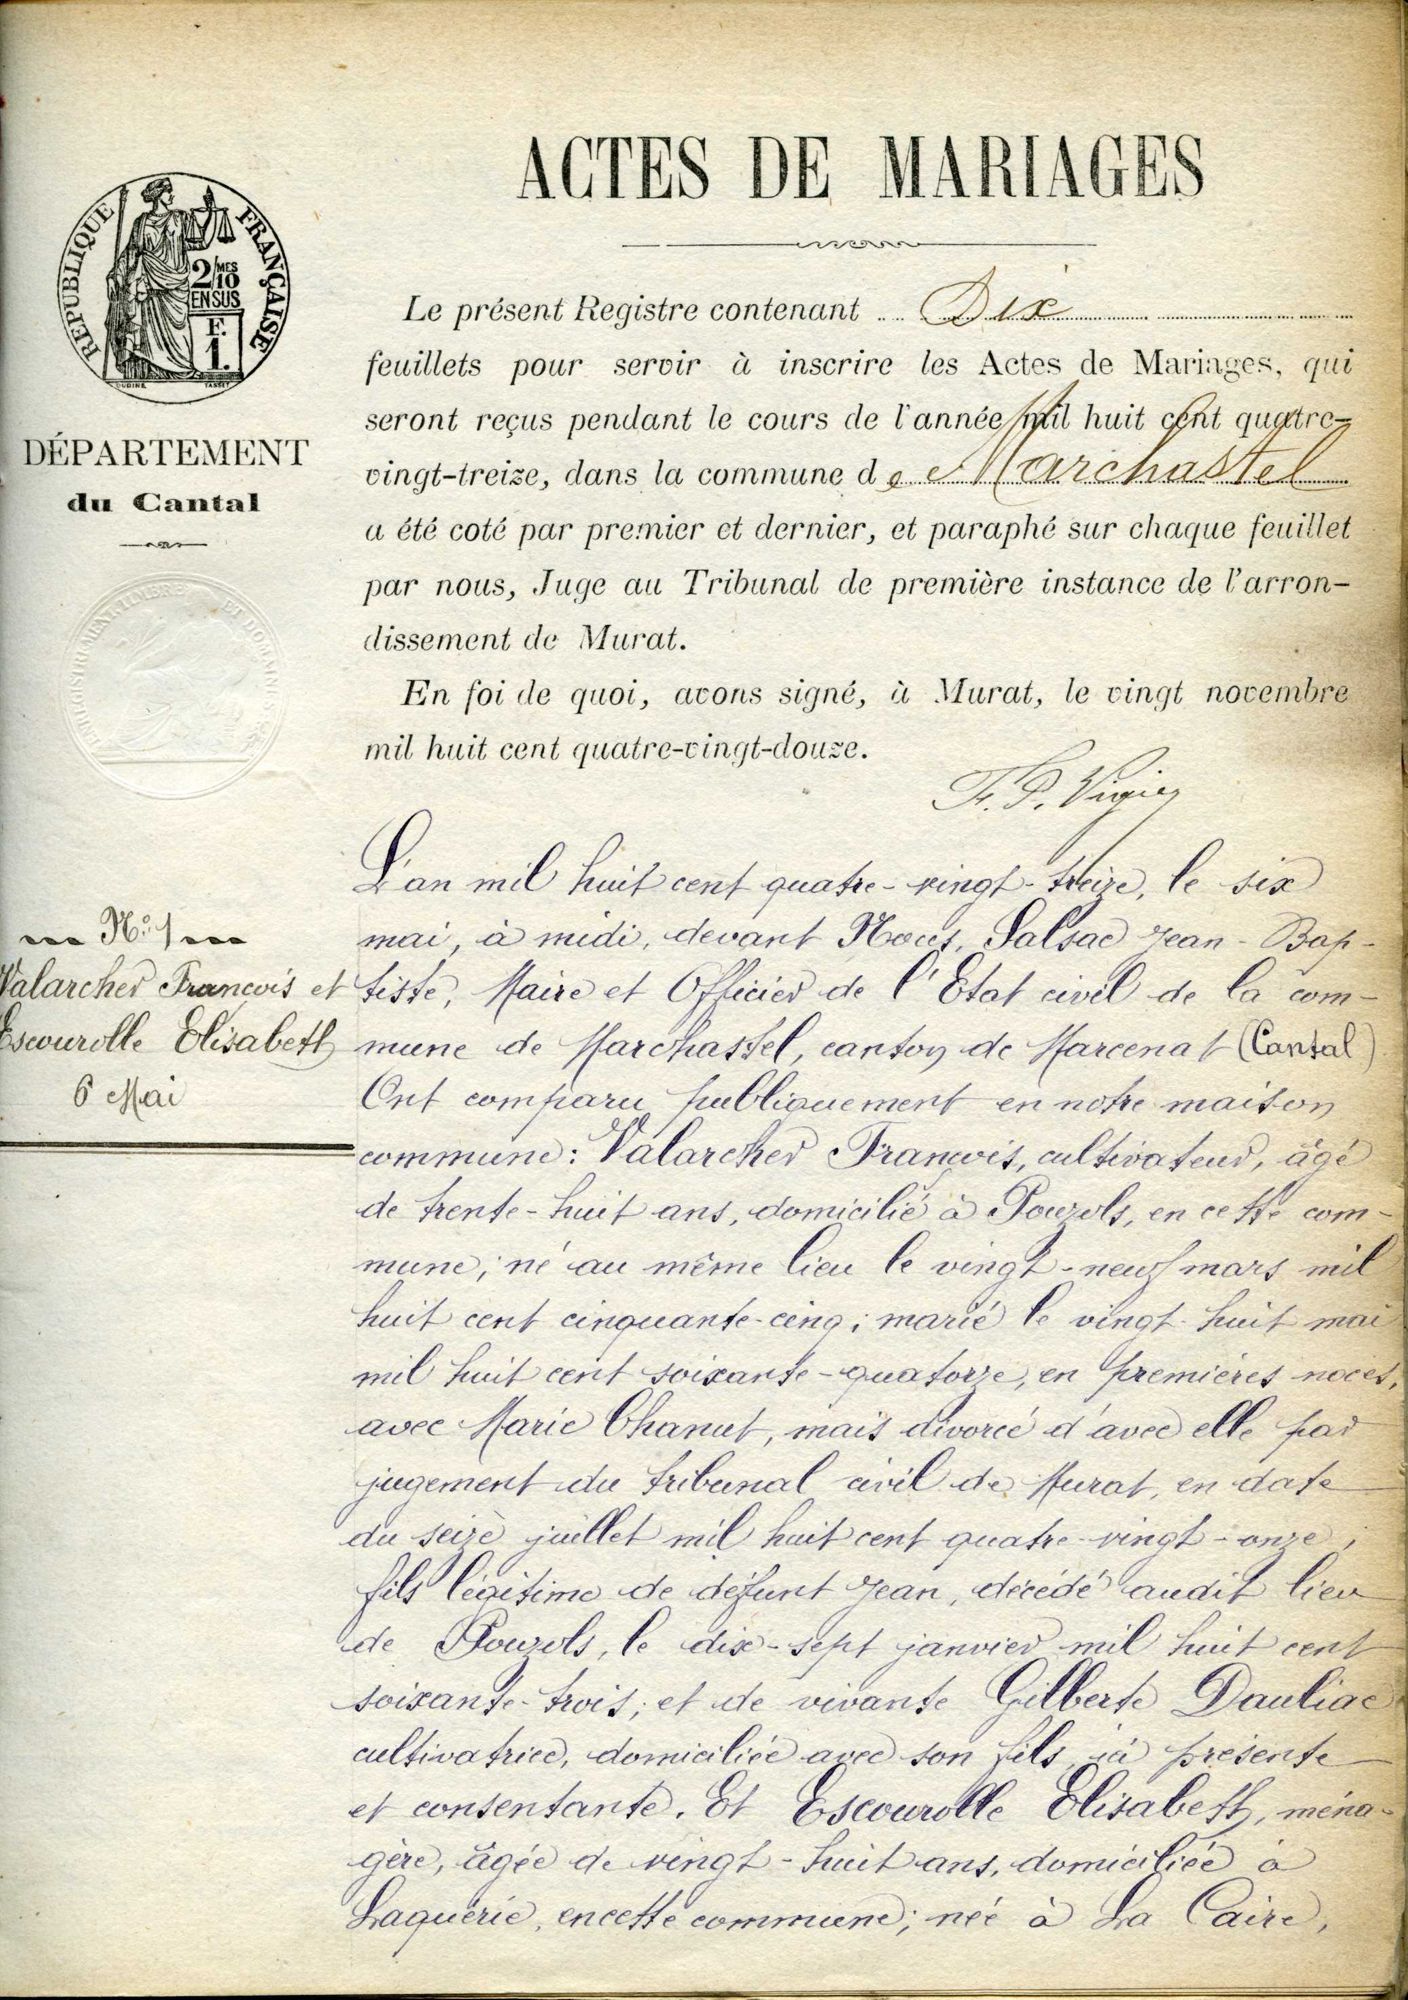 ACTES DE MARIAGES
RÉPUBLIQUE FRANÇAISE
2/10 MES
EN SUS
F.
1.
OUDINÉ TASSET
DÉPARTEMENT
du Cantal
ENREGISTREMENT TIMBRE ET DOMAINES
Le présent Registre contenant Dix
feuillets pour servir à inscrire les Actes de Mariages, qui
seront reçus pendant le cours de l'année mil huit cent quatre-
vingt-treize, dans la commune de Marchastel
a été coté par premier et dernier, et paraphé sur chaque feuillet
par nous, Juge au Tribunal de première instance de l'arron-
dissement de Murat.
En foi de quoi, avons signé, à Murat, le vingt novembre
mil huit cent quatre-vingt-douze.
F. P. Vigier
N° 1
Valarcher François et
Escourolle Elisabeth
6 Mai
L'an mil huit cent quatre-vingt-treize, le six
mai, à midi, devant Nous, Salsac Jean-Bap-
tiste, Maire et Officier de l'Etat civil de la com-
mune de Marchastel, canton de Marcenat (Cantal)
Ont comparu publiquement en notre maison
commune: Valarcher François, cultivateur, âgé
de trente-huit ans, domicilié à Pouzols, en cette com-
mune; né au même lieu le vingt-neuf mars mil
huit cent cinquante-cinq; marié le vingt-huit mai
mil huit cent soixante-quatorze, en premières noces,
avec Marie Chanut, mais divorcé d'avec elle par
jugement du tribunal civil de Murat, en date
du seize juillet mil huit cent quatre-vingt-onze,
fils légitime de défunt Jean, décédé audit lieu
de Pouzols, le dix-sept janvier mil huit cent
soixante-trois; et de vivante Gilberte Dauliac
cultivatrice, domiciliée avec son fils, ici présente
et consentante. Et Escourolle Elisabeth, ména-
gère, âgée de vingt-huit ans, domiciliée à
Laquérie, en cette commune; née à La Caire,